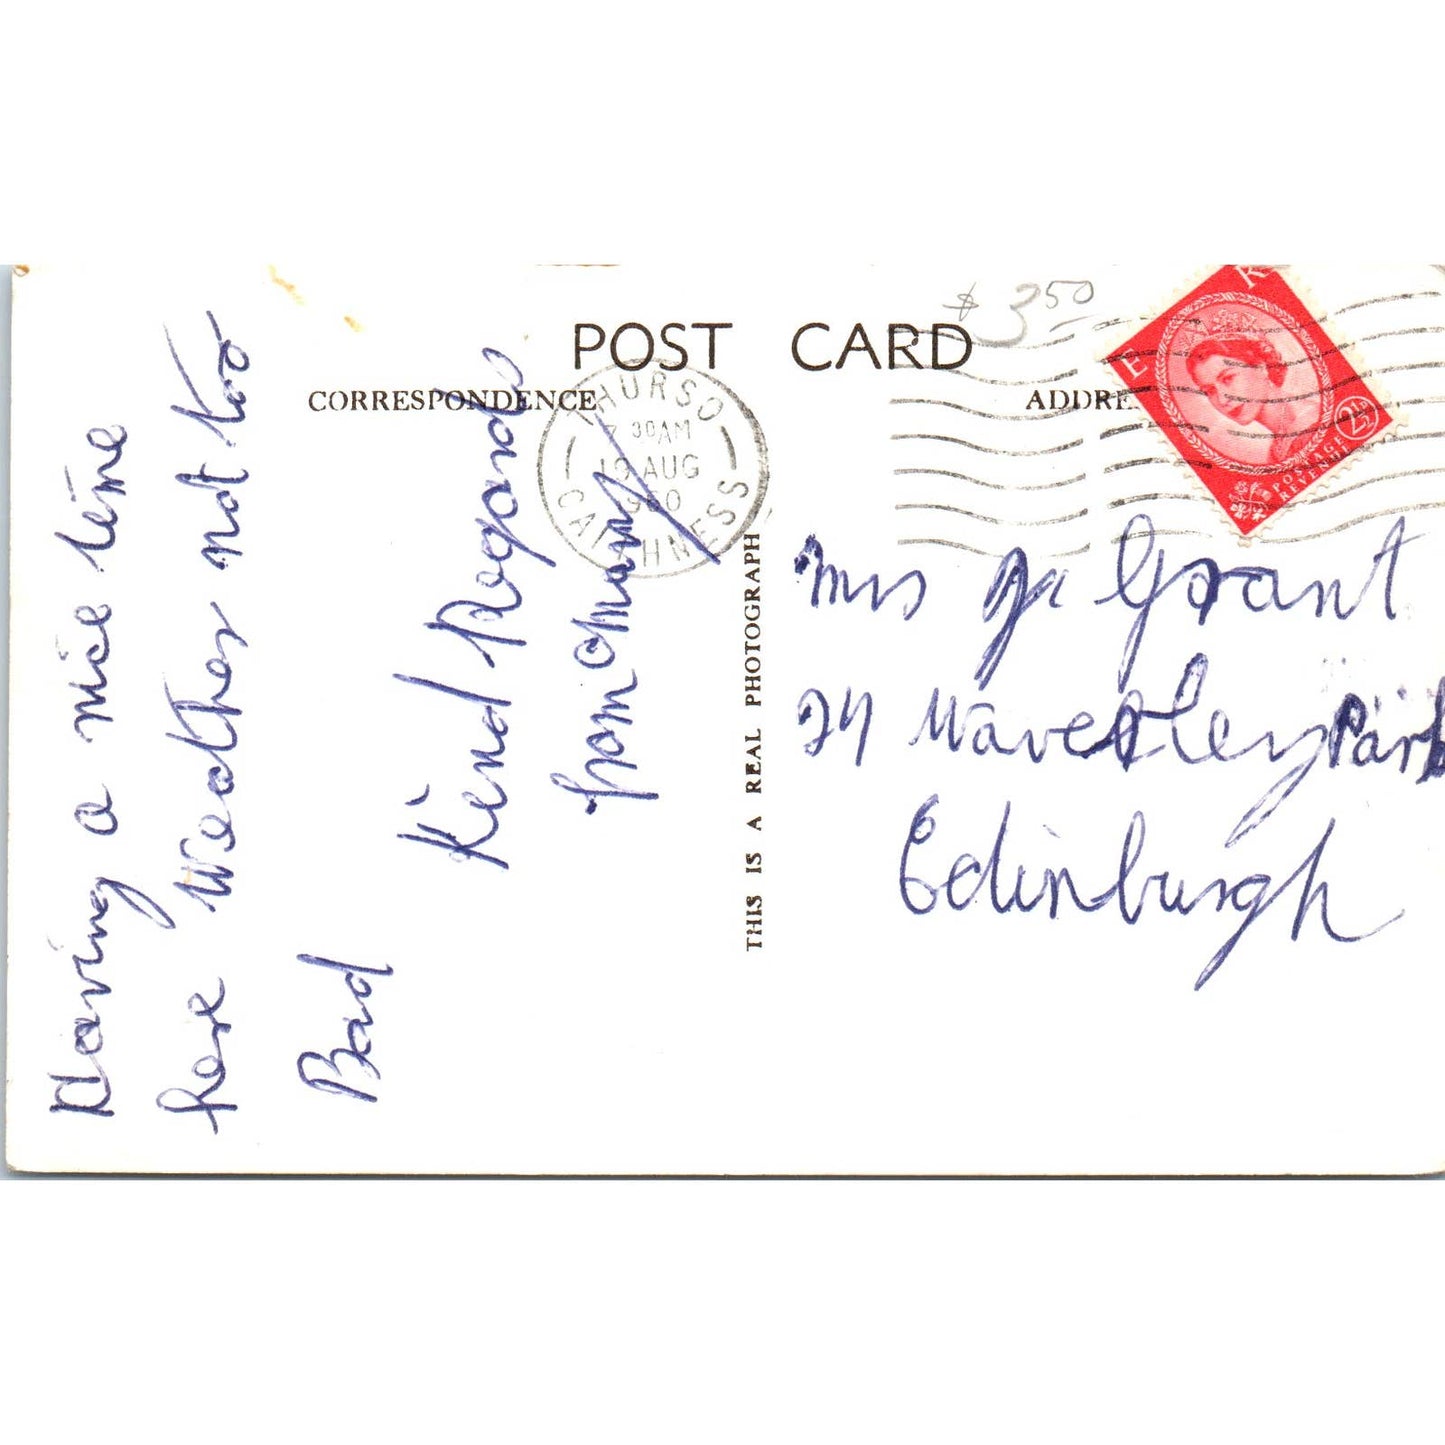 POST CARD
CORRESPONDENCE
ADDRE
$3.50
THURSO
7 30AM
19 AUG
1960
CAITHNESS
E R
2½D
POSTAGE
REVENUE
THIS IS A REAL PHOTOGRAPH
Having a nice time
here Weather not too
Bad
Kind Regards
from
Mrs Grant
24 Waverley Park
Edinburgh